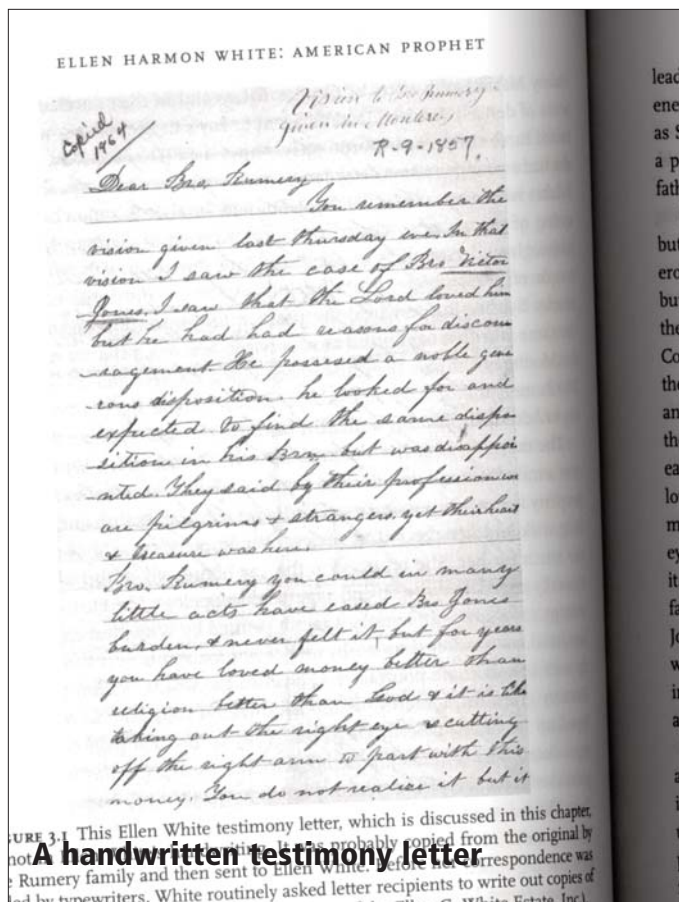 ELLEN HARMON WHITE: AMERICAN PROPHET
Copied
1964
Vision to Geo Rumery
given in Monterey
R-9-1857.
Dear Bro. Rumery
You remember the
vision given last thursday eve. In that
vision I saw the case of Bro Victor
Jones. I saw that the Lord loved him
but he had had reasons for discou
ragement He possesed a noble gene
rous disposition. he looked for and
expected to find the same dispo
sition in his Brn. but was disappoi
nted. They said by their profession we
are pilgrims & strangers, yet their heart
& treasure was here.
Bro. Rumery you could in many
little acts have eased Bro Jones
burden, & never felt it, but for years
you have loved money better than
religion better than God & it is like
taking out the right eye & cutting
off the right arm to part with this
money. You do not realize it but it
GURE 3.1 This Ellen White testimony letter, which is discussed in this chapter,
not handwriting. It was probably copied from the original by
A handwritten testimony letter
Rumery family and then sent to Ellen White. Before her correspondence was
by typewriters, White routinely asked letter recipients to write out copies of
lead
ene
as S
a p
fath
but
ero
bu
the
Co
the
an
the
ea
lo
m
ey
it
fa
Jo
w
in
a
a
i